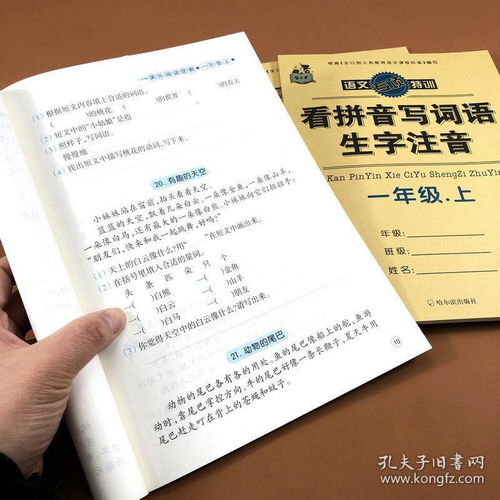 课外阅读理解 一年级上
(1) 根据短文内容填上合适的词语。
( )的桃花 ( )的世界 ( )的春天
(2) 短文中的“小姑娘”是指
(3) 照样子，写词语。
慢慢地
(4) 找出短文中描写桃花的动词，写下来。
20. 有趣的天空
小妹妹站在窗前，抬头看看天空。
蓝蓝的天空，飘着几朵白云，一朵像金鱼，一朵像山羊，
一朵像白马，还有最大的一朵像白熊。小妹妹向它们招招手：
“朋友们，快来和我一起跳舞，好吗？”
(1) 天上的白云像什么？用“ ”在短文中画出来。
(2) 在括号里填入合适的量词。
头 条 匹 朵 只 个
一( )白熊 一( )金鱼
一( )白云 一( )山羊
一( )白马 一( )朋友
(3) 你觉得天空中的白云像什么？请写出来。
21. 动物的尾巴
动物的尾巴各有各的用处。鱼的尾巴像船上的舵，鱼游
动时，靠尾巴掌控方向。牛的尾巴好像一条长鞭子，夏天牛用
尾巴赶走叮在背上的苍蝇和蚊子。
10
根据《全日制义务教育语文课程标准》编写
语文 特训
看拼音写词语
生字注音
Kan PinYin Xie CiYu ShengZi ZhuYin
一年级·上
年级：
班级：
姓名：
哈尔滨出版社
孔夫子旧书网
www.kongfz.com